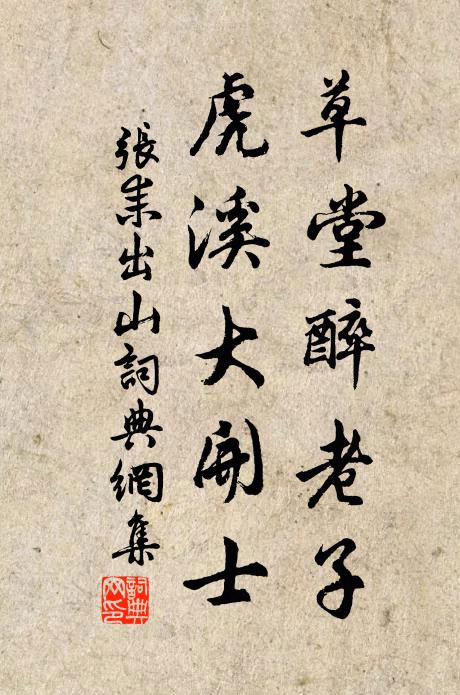 草堂醉老子
虎溪大開士
張耒出山詞典網集
詞典網印